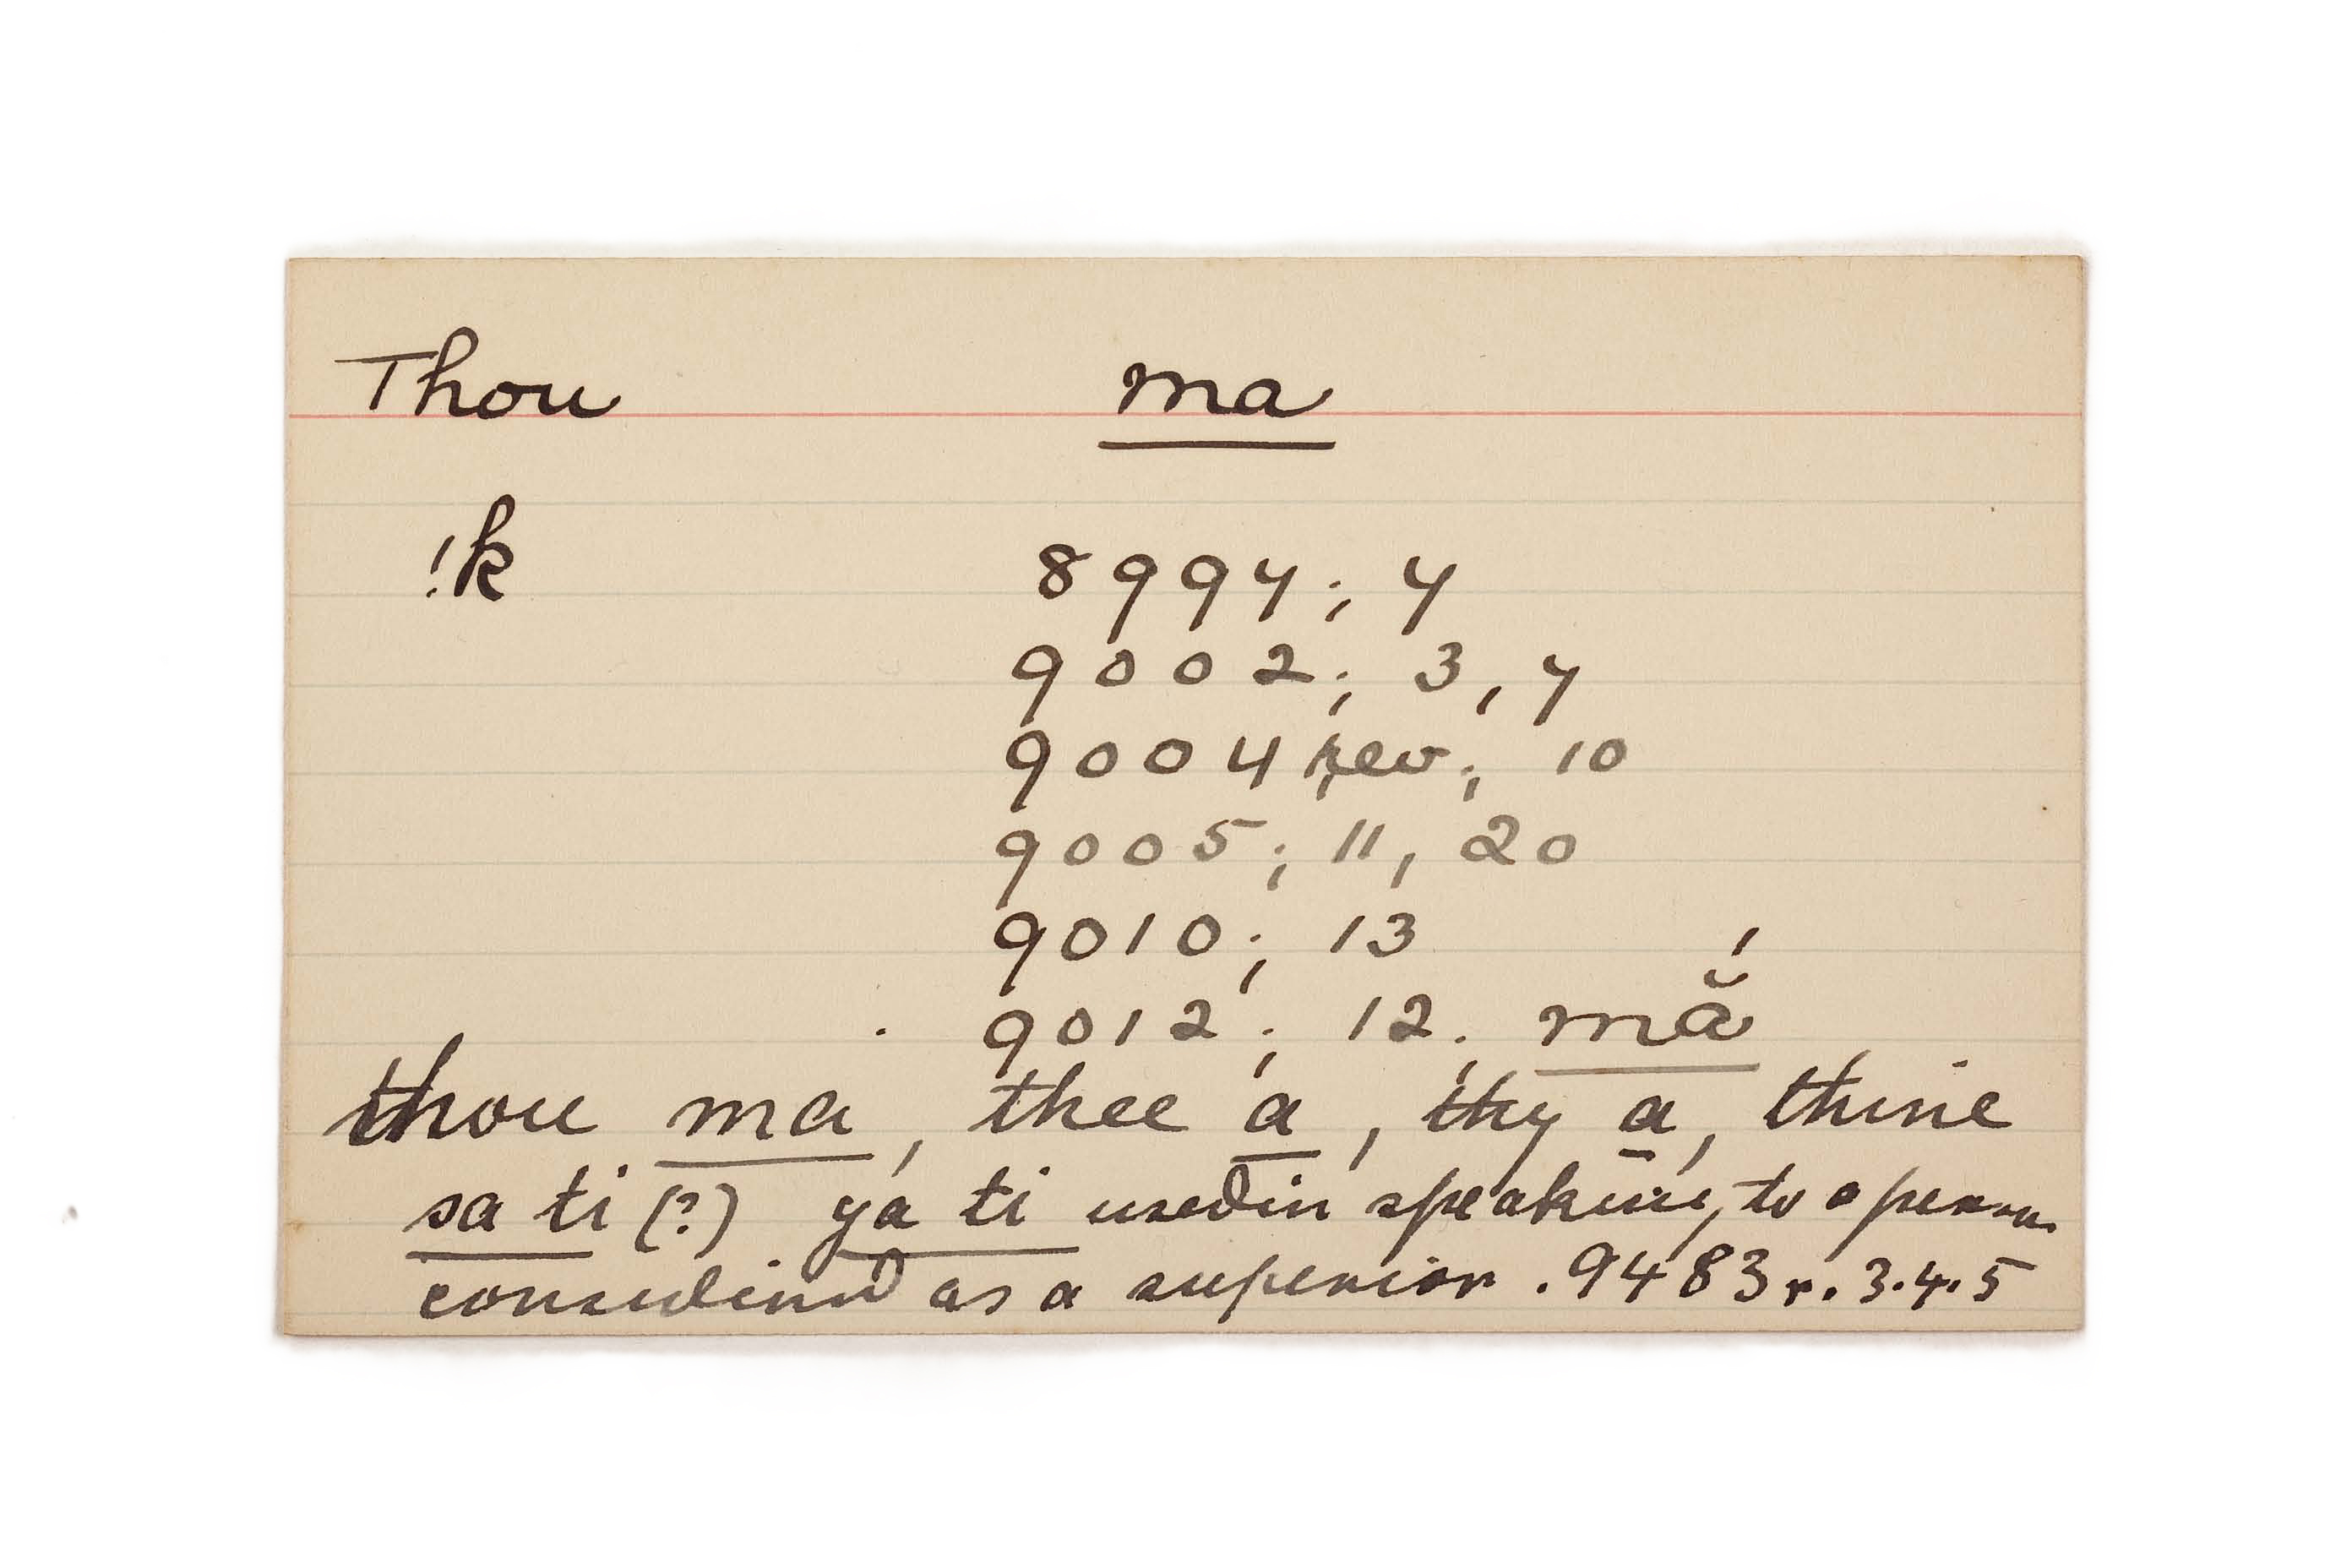 Thou ma
!k
8994; 4
9002; 3, 4
9004 rev; 10
9005; 11, 20
9010; 13
9012; 12; mā̆́
thou ma, thee a, thy a, thine
sa ti (?) ya ti used in speaking to a person
considered as a superior. 9483 r. 3.4.5